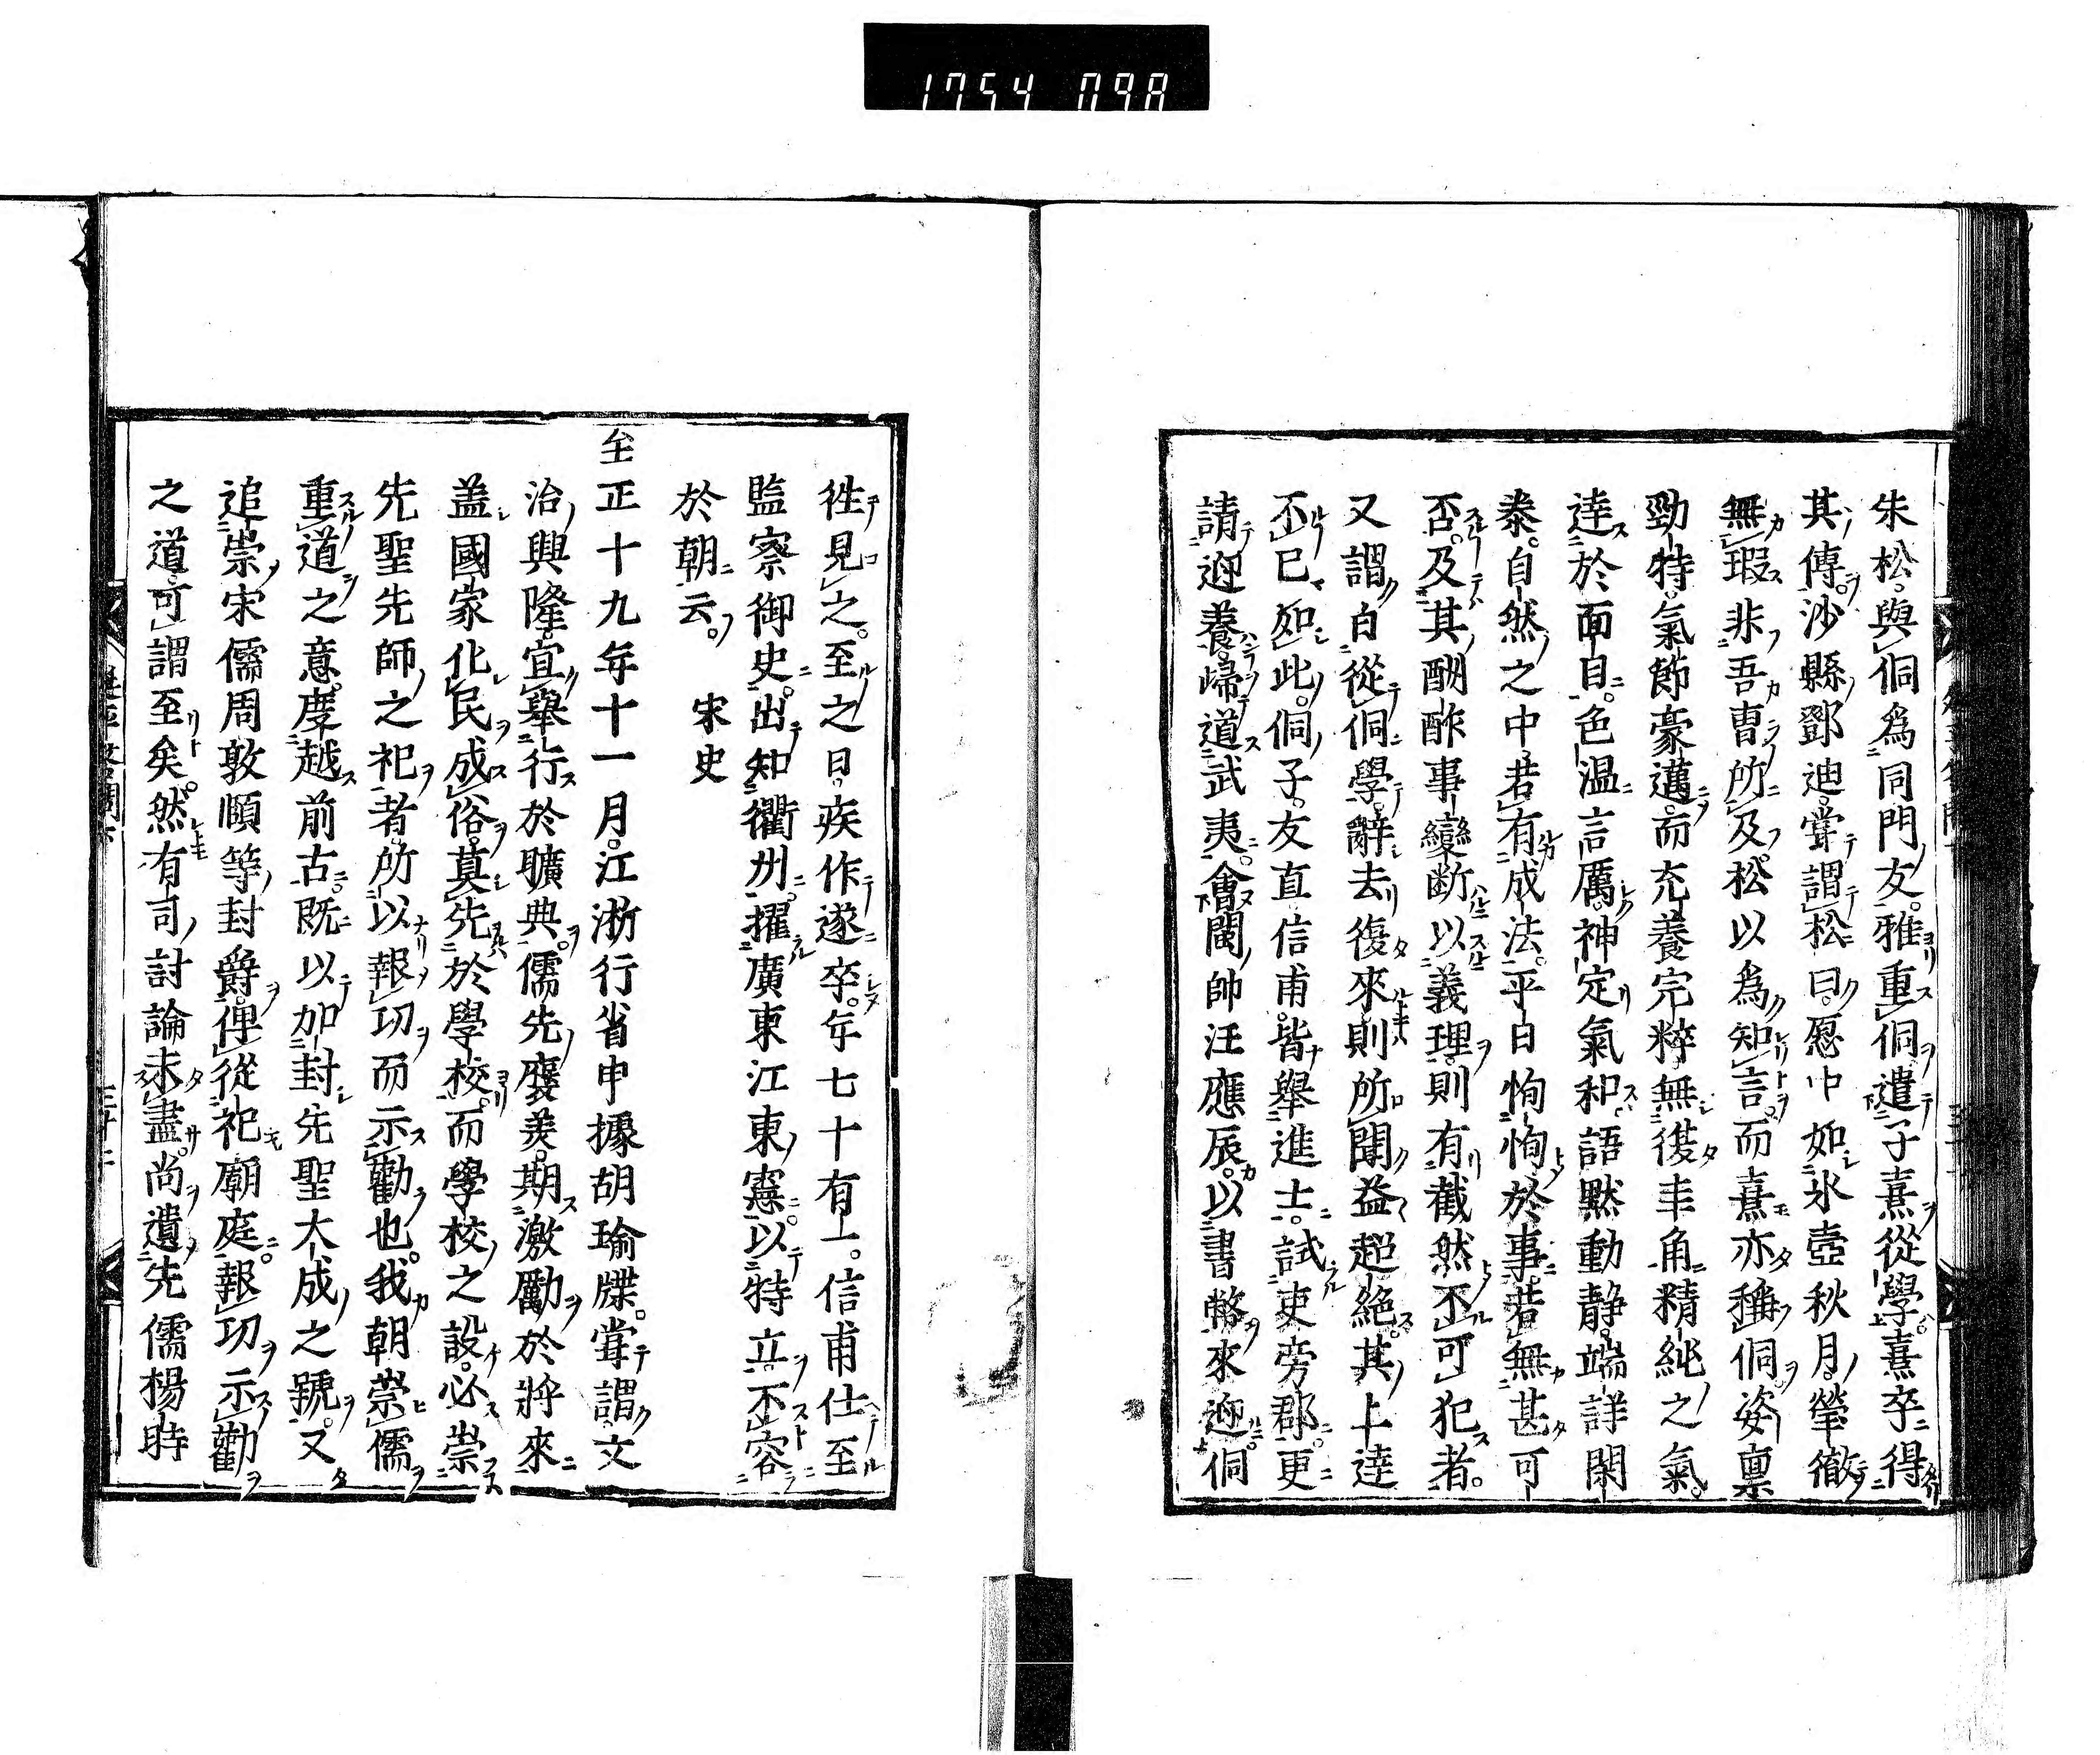 1754 098
朱松。與侗爲同門友。雅重侗。遣子熹從學。熹卒得
其傳。沙縣鄧迪。甞謂松曰。愿中如氷壺秋月。瑩徹
無瑕。非吾曹所及。松以爲知言。而熹亦稱侗。姿稟
勁特。氣節豪邁。而充養完粹。無復圭角。精純之氣。
達於面目。色温言厲。神定氣和。語默動静。端詳閑
泰。自然之中。若有成法。平日恂恂。於事若無甚可
否。及其酬酢事變。斷以義理。則有截然不可犯者。
又謂自從侗學。辭去復來。則所聞益超絶。其上達
不已如此。侗子友直信甫。皆舉進士。試吏旁郡。更
請迎養。歸道武夷。會閩帥汪應辰。以書幣來迎。侗
徃見之。至之日。疾作遂卒。年七十有一。信甫仕至
監察御史。出知衢州。擢廣東江東憲。以特立不容
於朝云。　宋史
至正十九年十一月。江浙行省申據胡瑜牒。甞謂文
治興隆。宜舉行於曠典。儒先褒美。期激勵於將來。
盖國家化民成俗。莫先於學校。而學校之設。必崇
先聖先師之祀者。所以報功而示勸也。我朝崇儒
重道之意。度越前古。既以加封先聖大成之號。又
追崇宋儒周敦頤等封爵。俾從祀廟庭。報功示勸
之道。可謂至矣。然有司討論未盡。尚遺先儒楊時